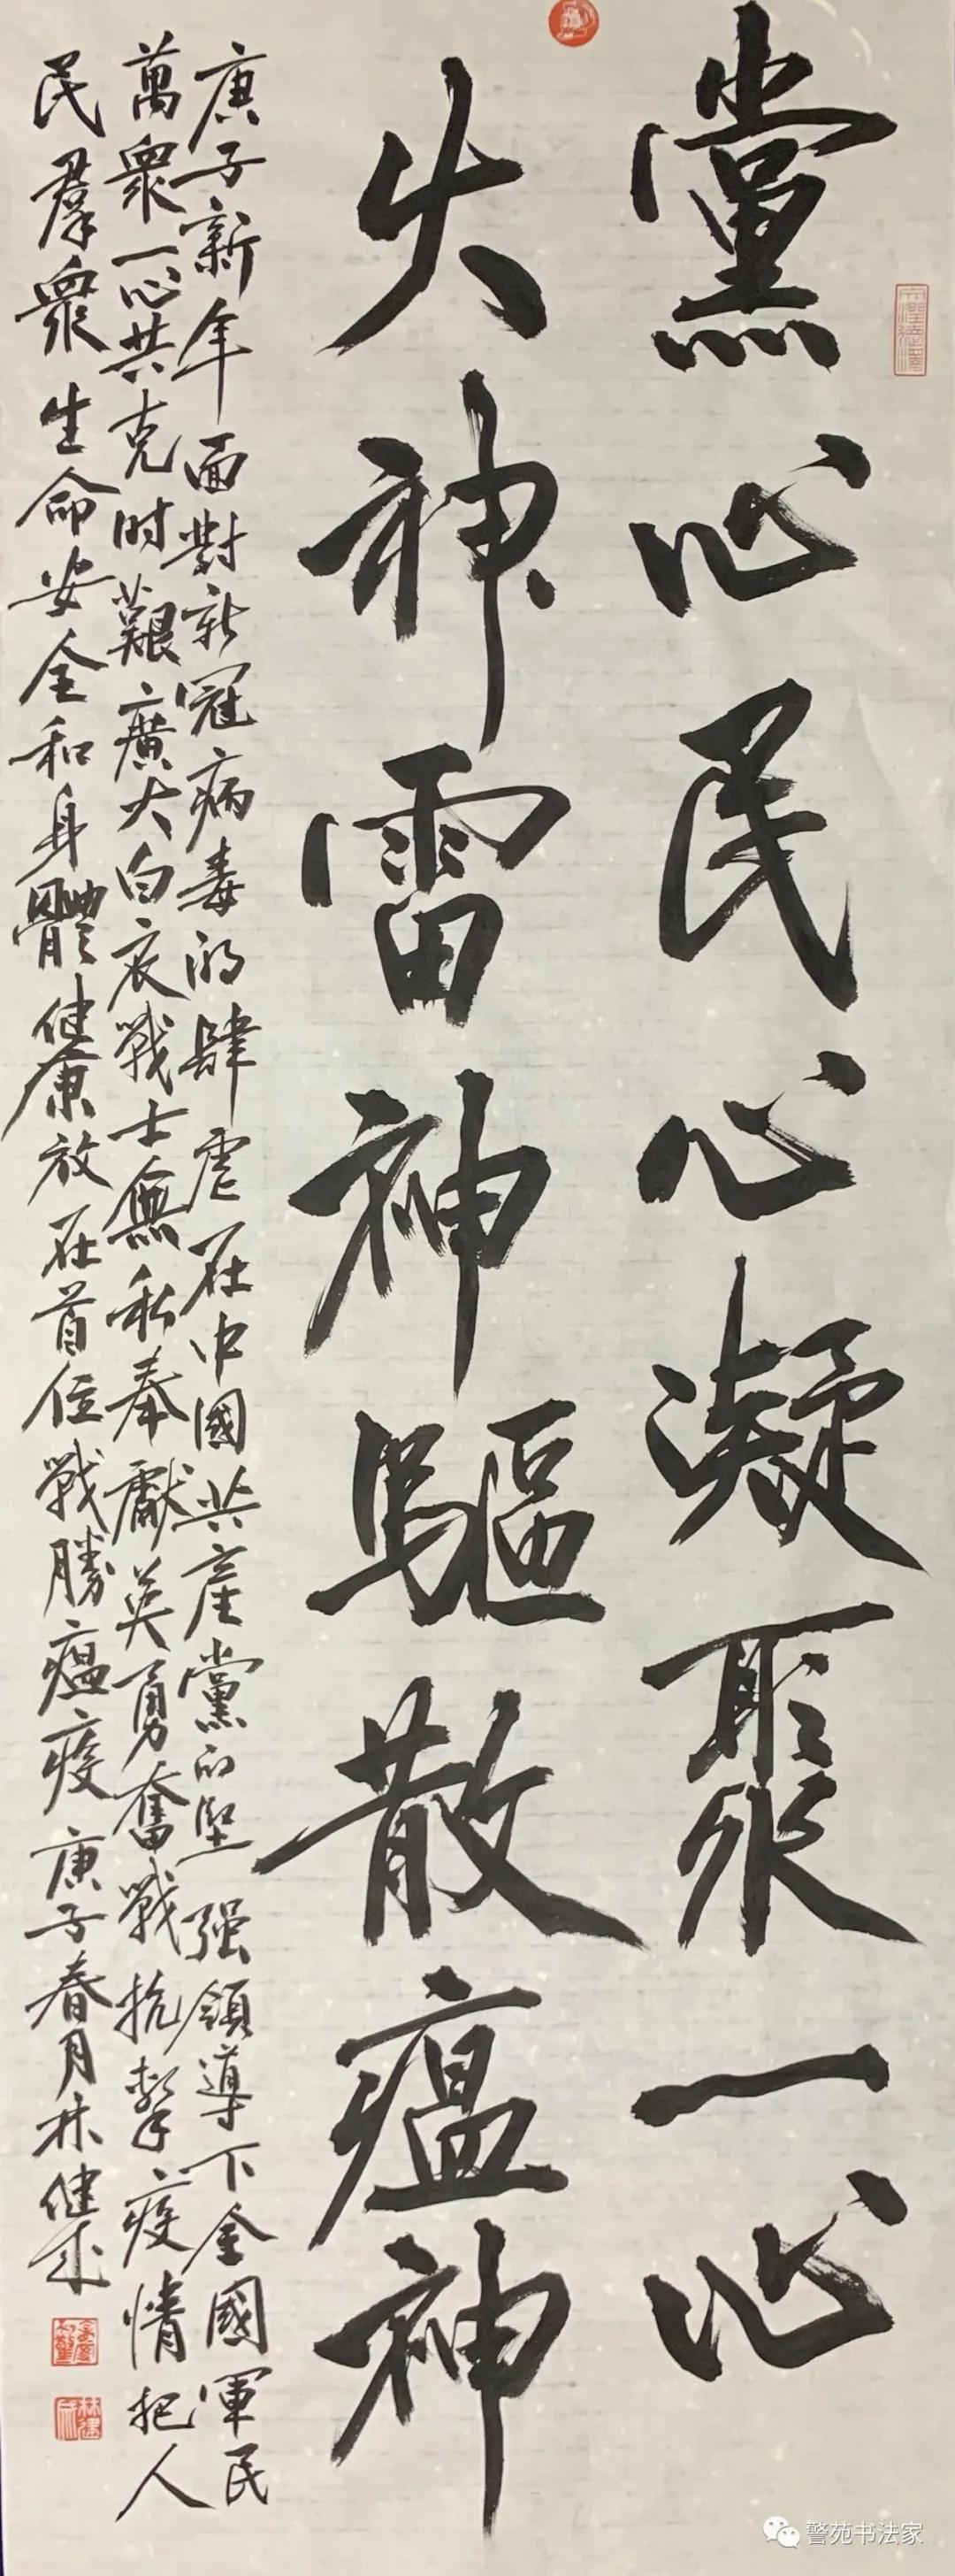 黨心民心凝聚一心
火神雷神驅散瘟神
庚子新年面對新冠病毒的肆虐在中國共産黨的堅强領導下全國軍民
萬衆一心共克时艱廣大白衣戰士無私奉獻英勇奮戰抗擊疫情把人
民羣衆生命安全和身體健康放在首位戰勝瘟疫庚子春月林健成
警苑书法家